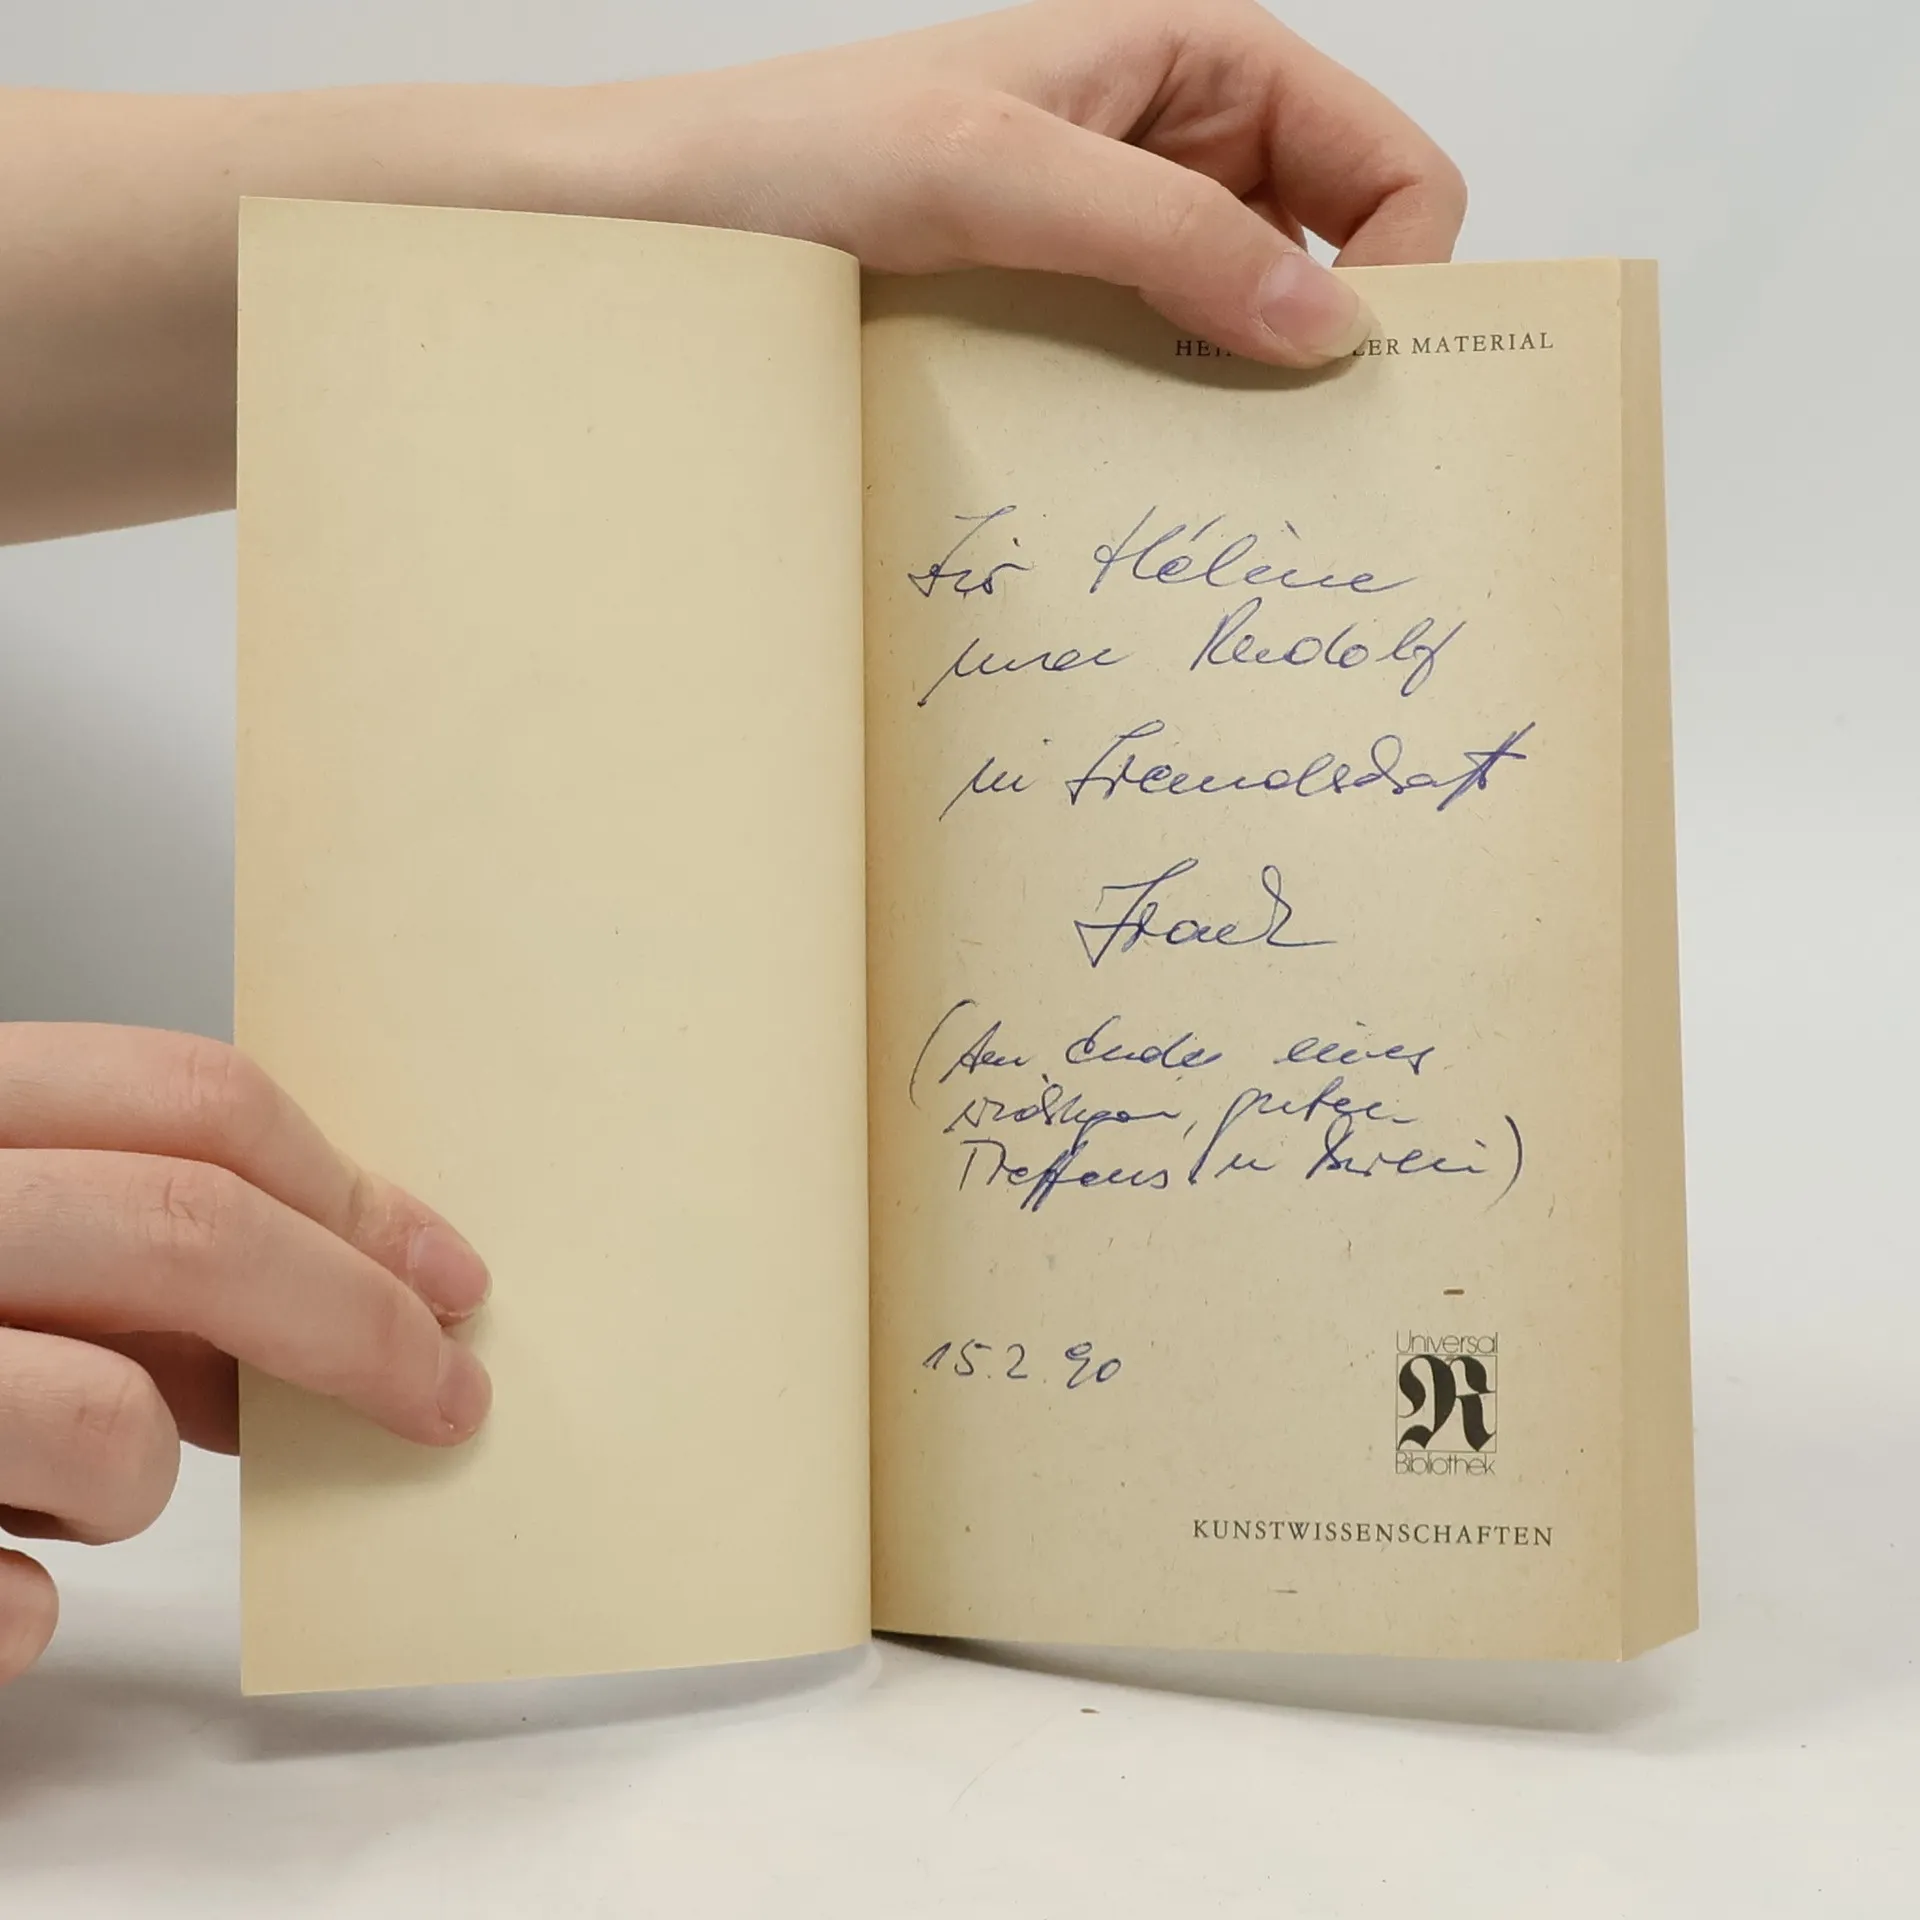 HEI LER MATERIAL
Für Hélène
und Rudolf
in Freundschaft
Frank
(Am Ende eines
wichtigen, guten
Treffens in )
15.2.90
Universal
R
Bibliothek
KUNSTWISSENSCHAFTEN